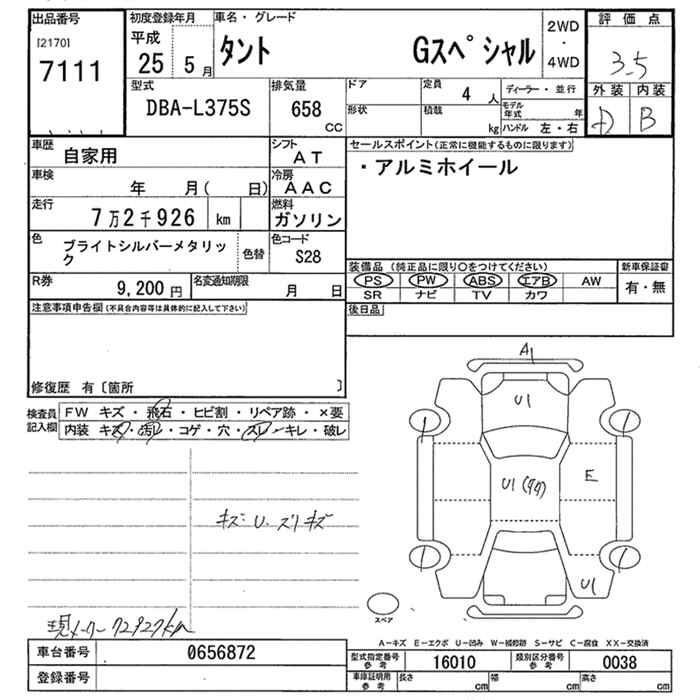 出品番号 初度登録年月 車名・グレード 2WD・4WD 評価点
[2170]
7111
平成 25 5月 タント Gスペシャル 3.5
型式 排気量 ドア 定員 4人 ディーラー・並行 外装 内装
DBA-L375S 658 CC 形状 積載 kg モデル年式 年 B
ハンドル 左・右
車歴 自家用 シフト AT セールスポイント(正常に機能するものに限ります)
・アルミホイール
車検 年 月( 日) 冷房 AAC
走行 7万2千926 km 燃料 ガソリン
色 ブライトシルバーメタリック 色替 色コード S28
装備品 (純正品に限り○をつけてください) 新車保証書
PS PW ABS エアB AW 有・無
SR ナビ TV カワ
R券 9,200円 名変通知期限 月 日
後日品
注意事項申告欄(不具合内容等は具体的に記入して下さい)
修復歴 有〔箇所 〕
検査員記入欄 FW キズ・飛石・ヒビ割・リペア跡・×要
内装 キズ・汚レ・コゲ・穴・スレ・キレ・破レ
A1
U1
U1 E
U1
キズ. U. スリキズ
現メーター 72927km
スペア
A-キズ E-エクボ U-凹み W-補修跡 S-サビ C-腐食 XX-交換済
車台番号 0656872 型式指定番号 参考 16010 類別区分番号 参考 0038
登録番号 車庫証明用 参考 長さ cm 幅 cm 高さ cm